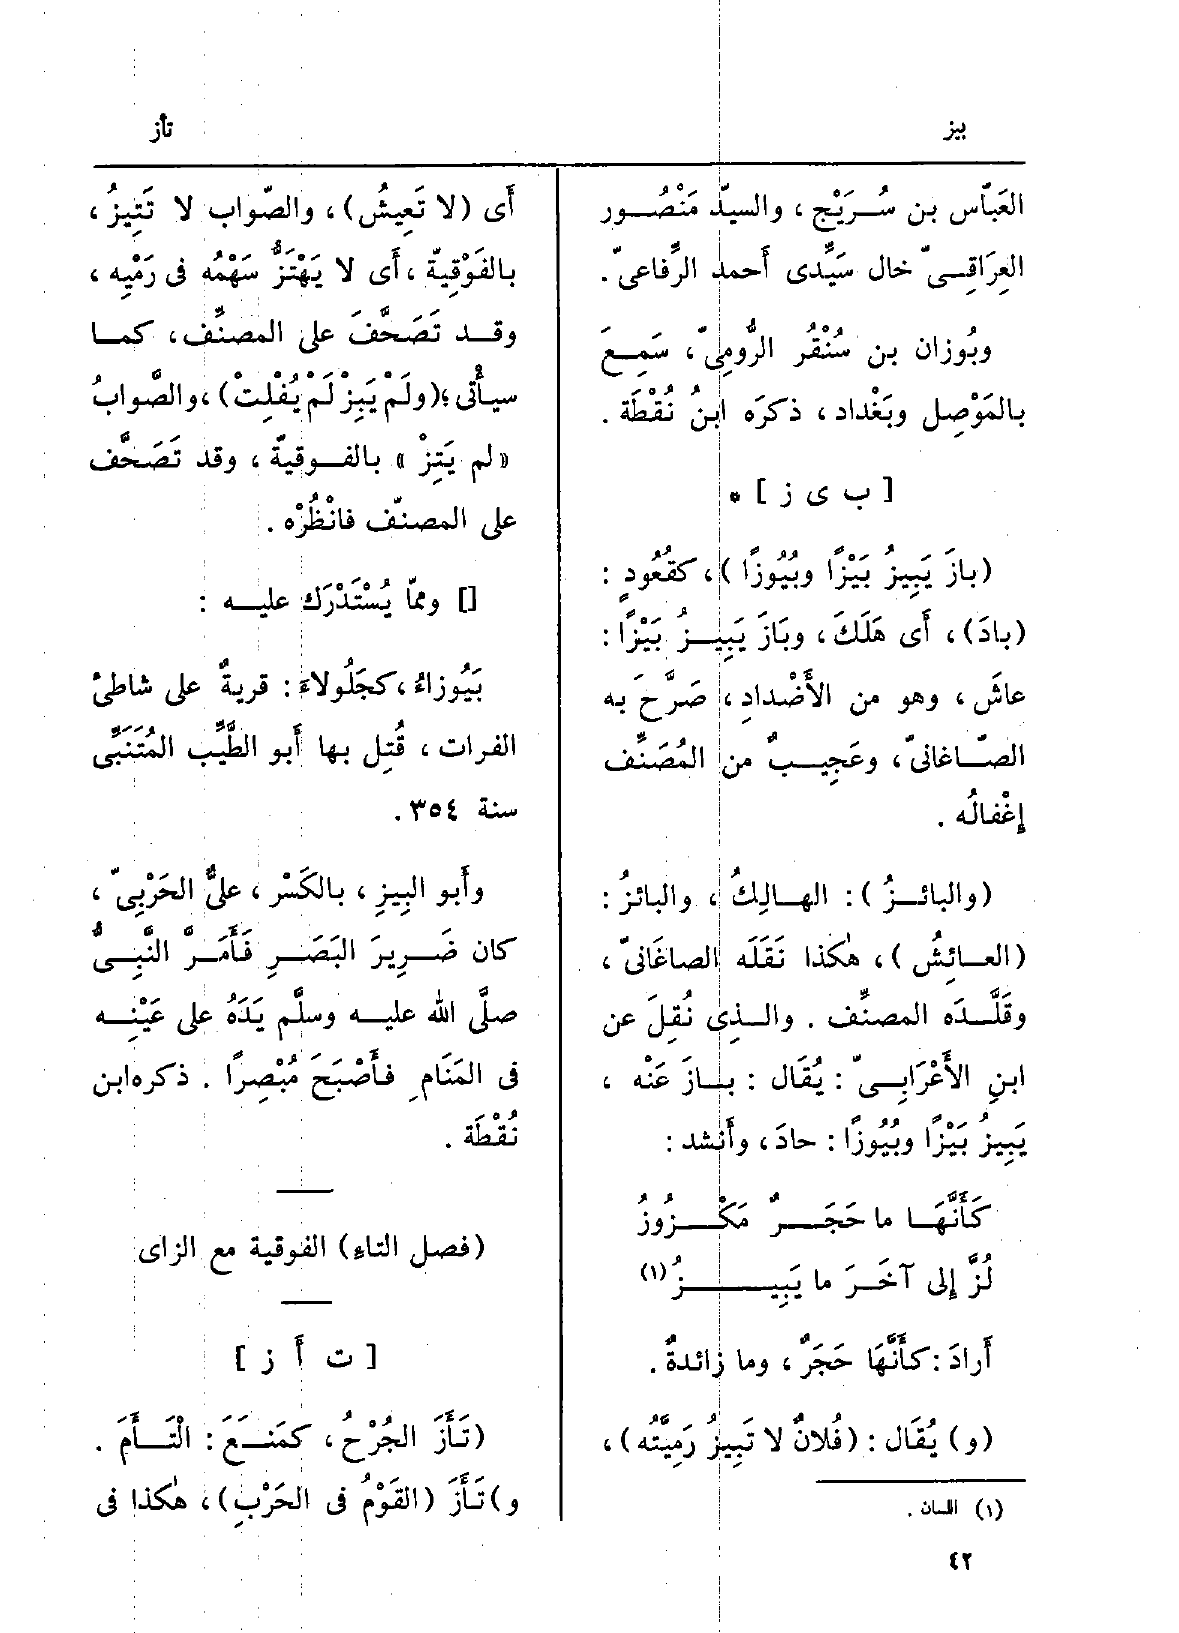 بيز
تأز
العَبّاس بن سُرَيْج ، والسيدّ مَنْصُور
العِرَاقِيّ خال سَيِّدى أحمد الرِّفاعىّ .
وبُوزان بن سُنْقُر الرُّومِىّ ، سَمِعَ
بالمَوْصِل وبَغْداد ، ذكرَه ابنُ نُقْطَة .
[ ب ى ز ] *
(بازَ يَبِيزُ بَيْزًا وبُيُوزًا )، كقُعُودٍ :
(بادَ) ، أى هَلَكَ ، وبَازَ يَبِيزُ بَيْزًا :
عاشَ ، وهو من الأَضْدادِ ، صَرَّحَ به
الصّاغانىّ ، وعَجِيبٌ من المُصَنِّف
إغْفالُه .
(والبائزُ ) : الهالِكُ ، والبائزُ :
(العائِشُ ) ، هٰكذا نَقَلَه الصاغَانىّ ،
وقَلَّدَه المصنِّف . والذِى نُقِلَ عن
ابنِ الأَعْرَابىّ : يُقَال : بازَ عَنْه ،
يَبِيزُ بَيْزًا وبُيُوزًا : حادَ ، وأَنشد :
كَأَنَّهَا ما حَجَرٌ مَكْزُوزُ
لُزَّ إلى آخَرَ ما يَبِيزُ (١)
أَرادَ : كأَنَّهَا حَجَرٌ ، وما زائدةٌ .
(و) يُقَال : (فُلانٌ لا تَبِيزُ رَمِيَّتُه) ،
(١) اللسان .
٤٢
أَى (لا تَعِيشُ) ، والصّواب لا تَتِيزُ ،
بالفَوْقِيّة ، أَى لا يَهْتَزُّ سَهْمُه فى رَمْيِه ،
وقد تَصَحَّفَ على المصنِّف ، كما
سيأْتى ؛ (ولَمْ يَبِزْ لَمْ يُفْلِتْ) ، والصَّوابُ
« لم يَتِزْ » بالفوقيّة ، وقد تَصَحَّف
على المصنّف فانْظُرْه .
[] وممّا يُسْتَدْرَك عليه :
بَيُوزاءُ ، كجَلُولاءَ : قريةٌ على شاطئ
الفرات ، قُتِل بها أَبو الطَّيِّب المُتَنَبِّى
سنة ٣٥٤ .
وأَبو البِيزِ ، بالكَسْر ، علىُّ الحَرْبِىّ ،
كان ضَرِيرَ البَصَرِ فَأَمَرَّ النَّبِىُّ
صلَّى الله عليه وسلَّم يَدَهُ على عَيْنِه
فى المَنَامِ فأَصْبَحَ مُبْصِرًا . ذكره ابن
نُقْطَة .
(فصل التاء) الفوقية مع الزاى
[ ت أَ ز ]
(تَأَزَ الجُرْحُ ، كمَنَعَ : الْتَأَمَ .
و) تَأَزَ (القَوْمُ فى الحَرْبِ) ، هٰكذا فى